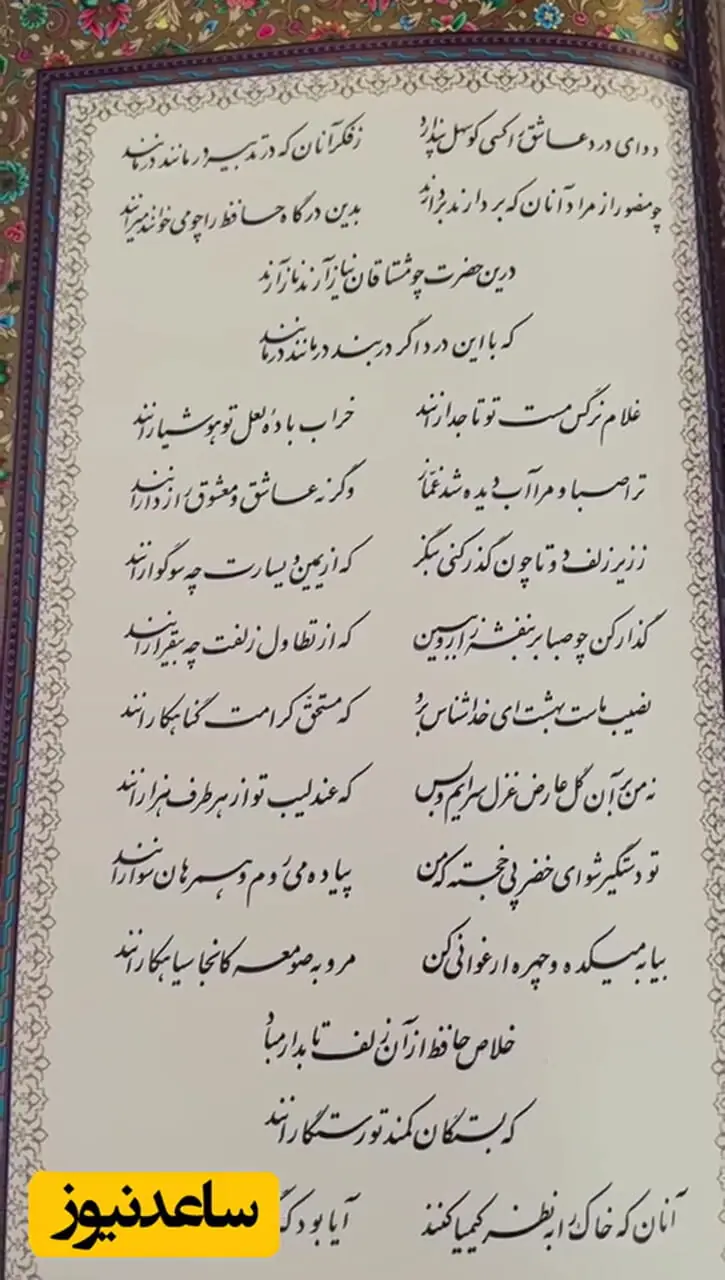 دوای درد عاشق را کسی کو سهل پندارد ز فکر آنان که در تدبیر درمانند در مانند
چو منصور از مراد آنان که بردارند بردارند بدین درگاه حافظ را چو می‌خوانند می‌رانند
درین حضرت چو مشتاقان نیاز آرند ناز آرند
که با این درد اگر در بند درمانند درمانند
غلام نرگس مست تو تاجدارانند خراب بادهٔ لعل تو هوشیارانند
ترا صبا و مرا آب دیده شد غمّاز وگرنه عاشق و معشوق رازدارانند
ز زیر زلف دوتا چون گذر کنی بنگر که از یمین و یسارت چه سوگوارانند
گذار کن چو صبا بر بنفشه‌زار و ببین که از تطاول زلفت چه بیقرارانند
نصیب ماست بهشت ای خداشناس برو که مستحقّ کرامت گناهکارانند
نه من بر آن گل عارض غزل سرایم و بس که عندلیب تو از هر طرف هزارانند
تو دستگیر شو ای خضر پی خجسته که من پیاده می‌روم و همرهان سوارانند
بیا به میکده و چهره ارغوانی کن مرو به صومعه کانجا سیاهکارانند
خلاص حافظ از آن زلف تابدار مباد
که بستگان کمند تو رستگارانند
آنان که خاک را به نظر کیمیا کنند آیا بود که
ساعدنیوز